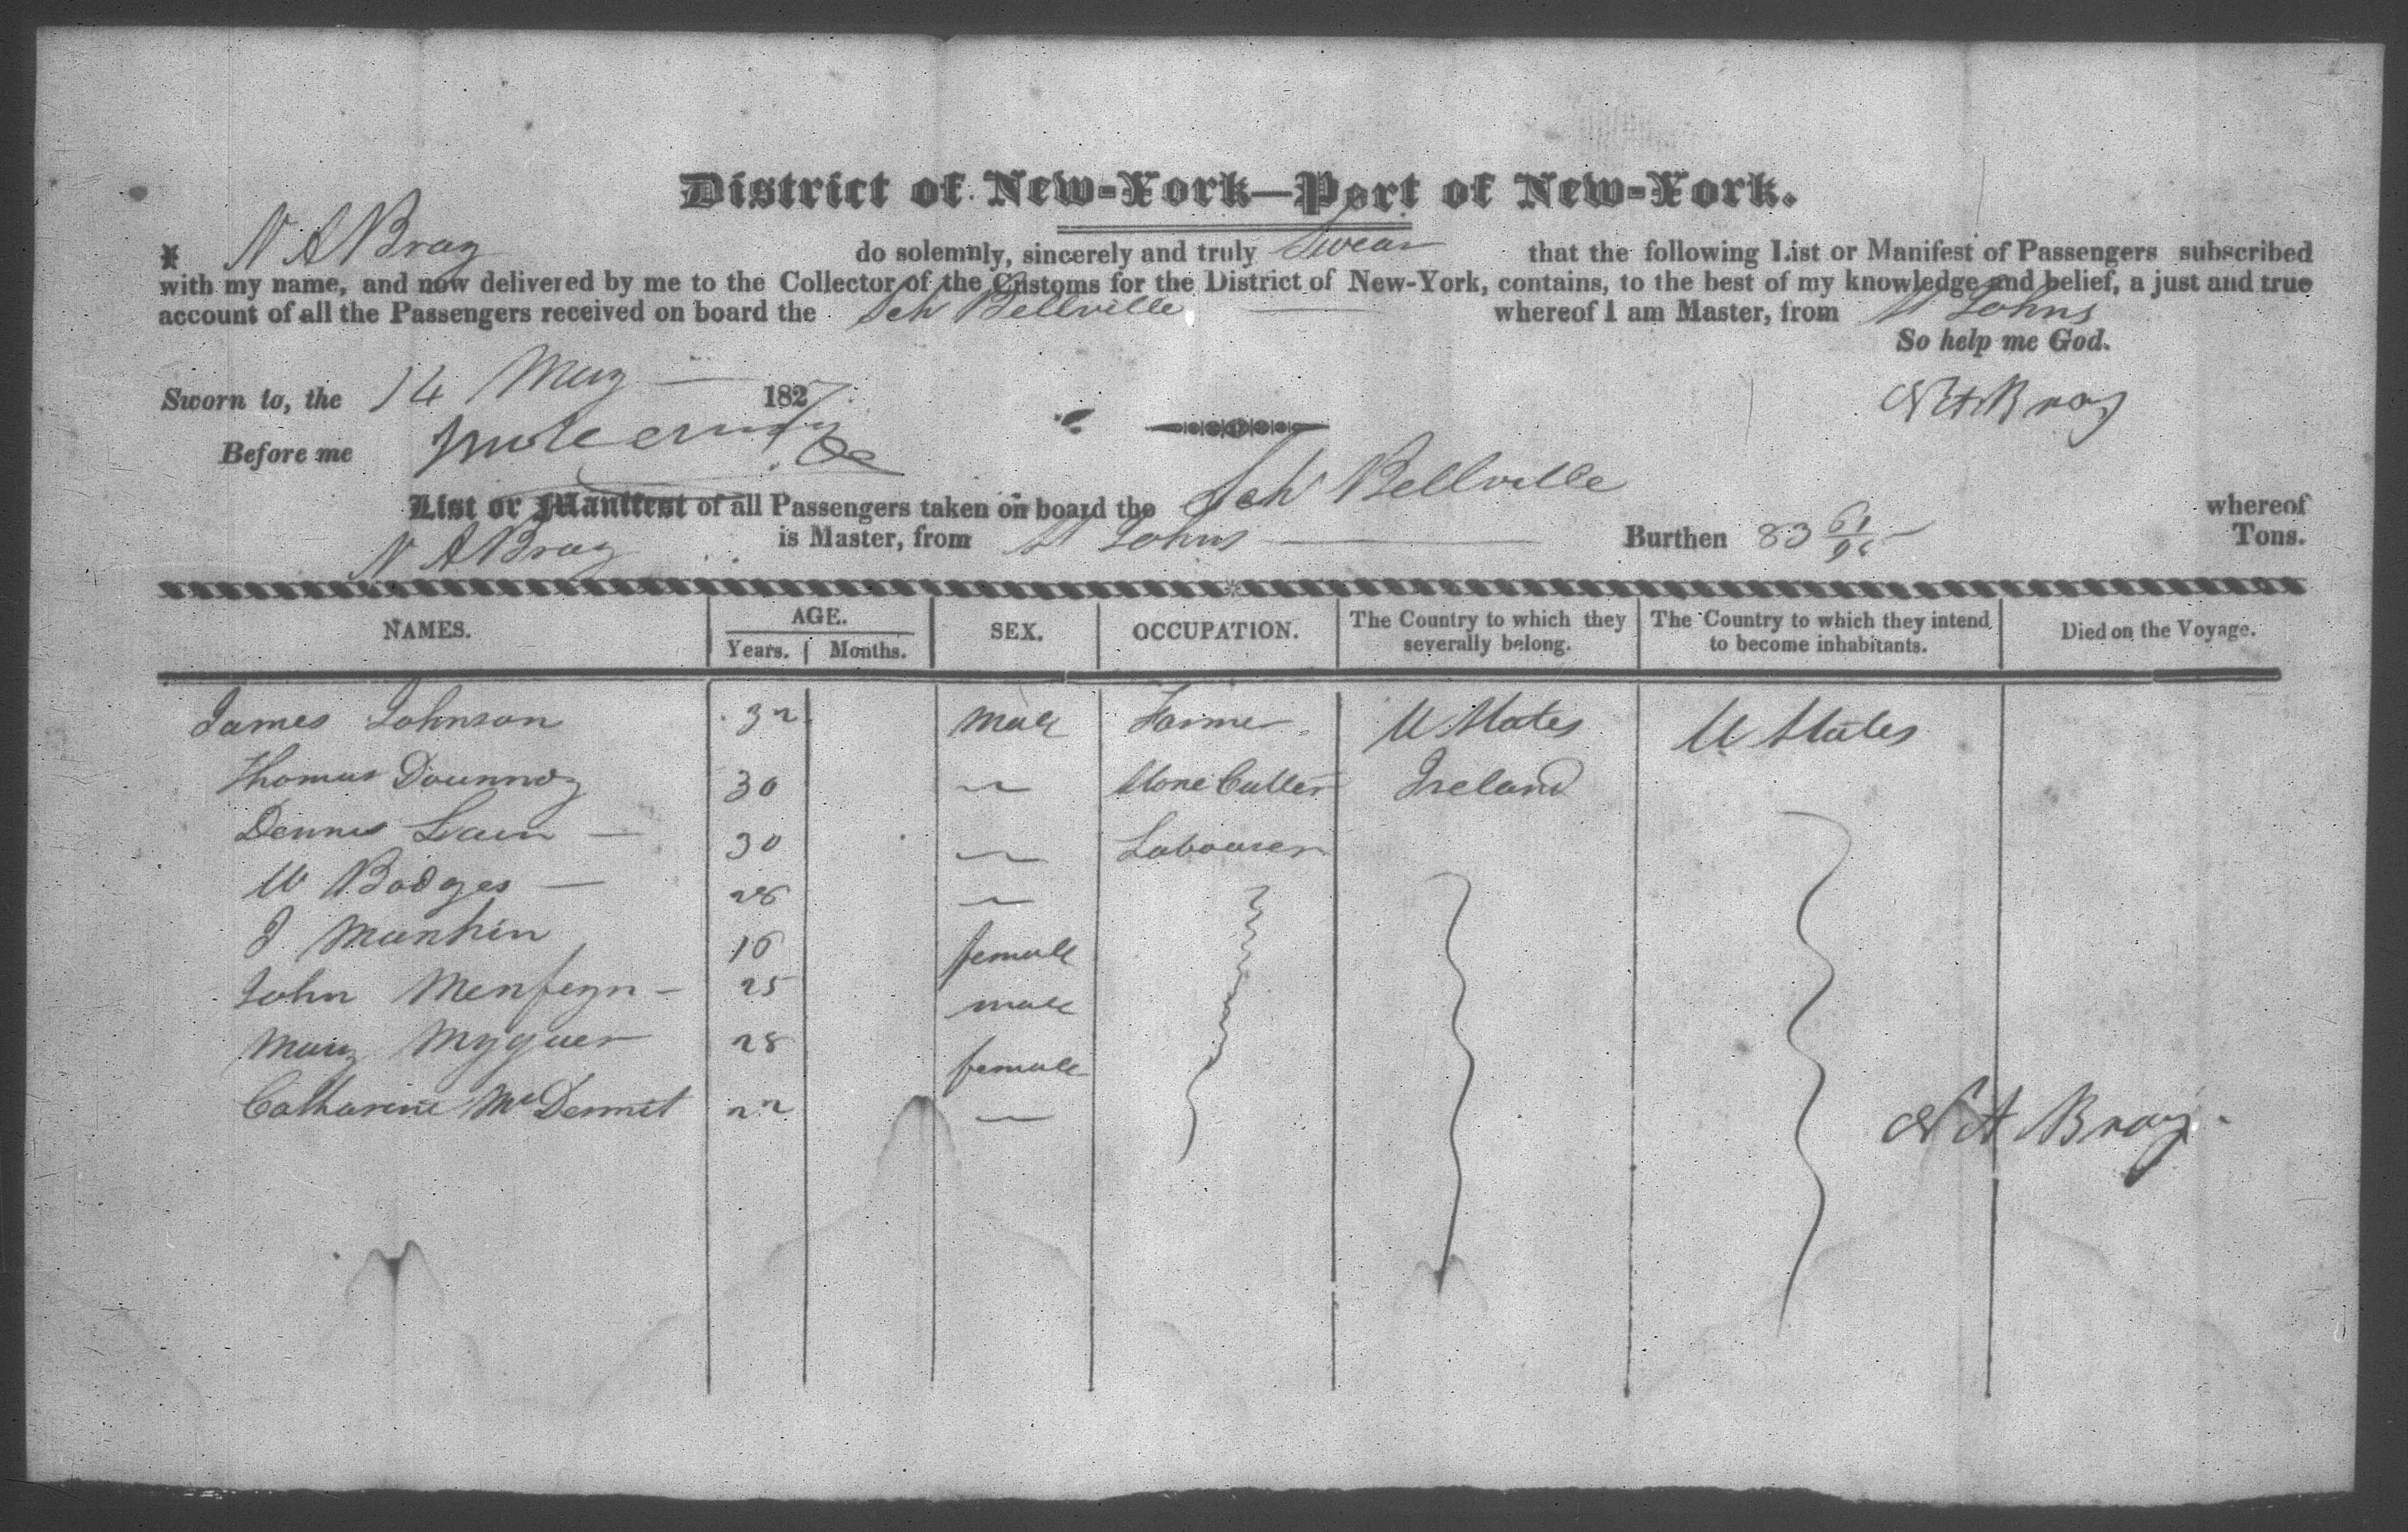 District of New-York—Port of New-York.
I N A Bray do solemnly, sincerely and truly Swear that the following List or Manifest of Passengers subscribed
with my name, and now delivered by me to the Collector of the Customs for the District of New-York, contains, to the best of my knowledge and belief, a just and true
account of all the Passengers received on board the Sch Bellville whereof I am Master, from St Johns
So help me God.
Sworn to, the 14 May 1827
N A Bray
Before me
List or Manifest of all Passengers taken on board the Sch Bellville whereof
N A Bray is Master, from St Johns Burthen 83 61/95 Tons.
NAMES. AGE. SEX. OCCUPATION. The Country to which they severally belong. The Country to which they intend to become inhabitants. Died on the Voyage.
Years. Months.
James Johnson 32 male Farmer U States U States
Thomas 30 Stone Cutter Ireland
Dennis 30 Labourer
W Bodges 28
J Mankin 16 female
John 25 male
Mary 28 female
Catharine McDermit 22
N A Bray